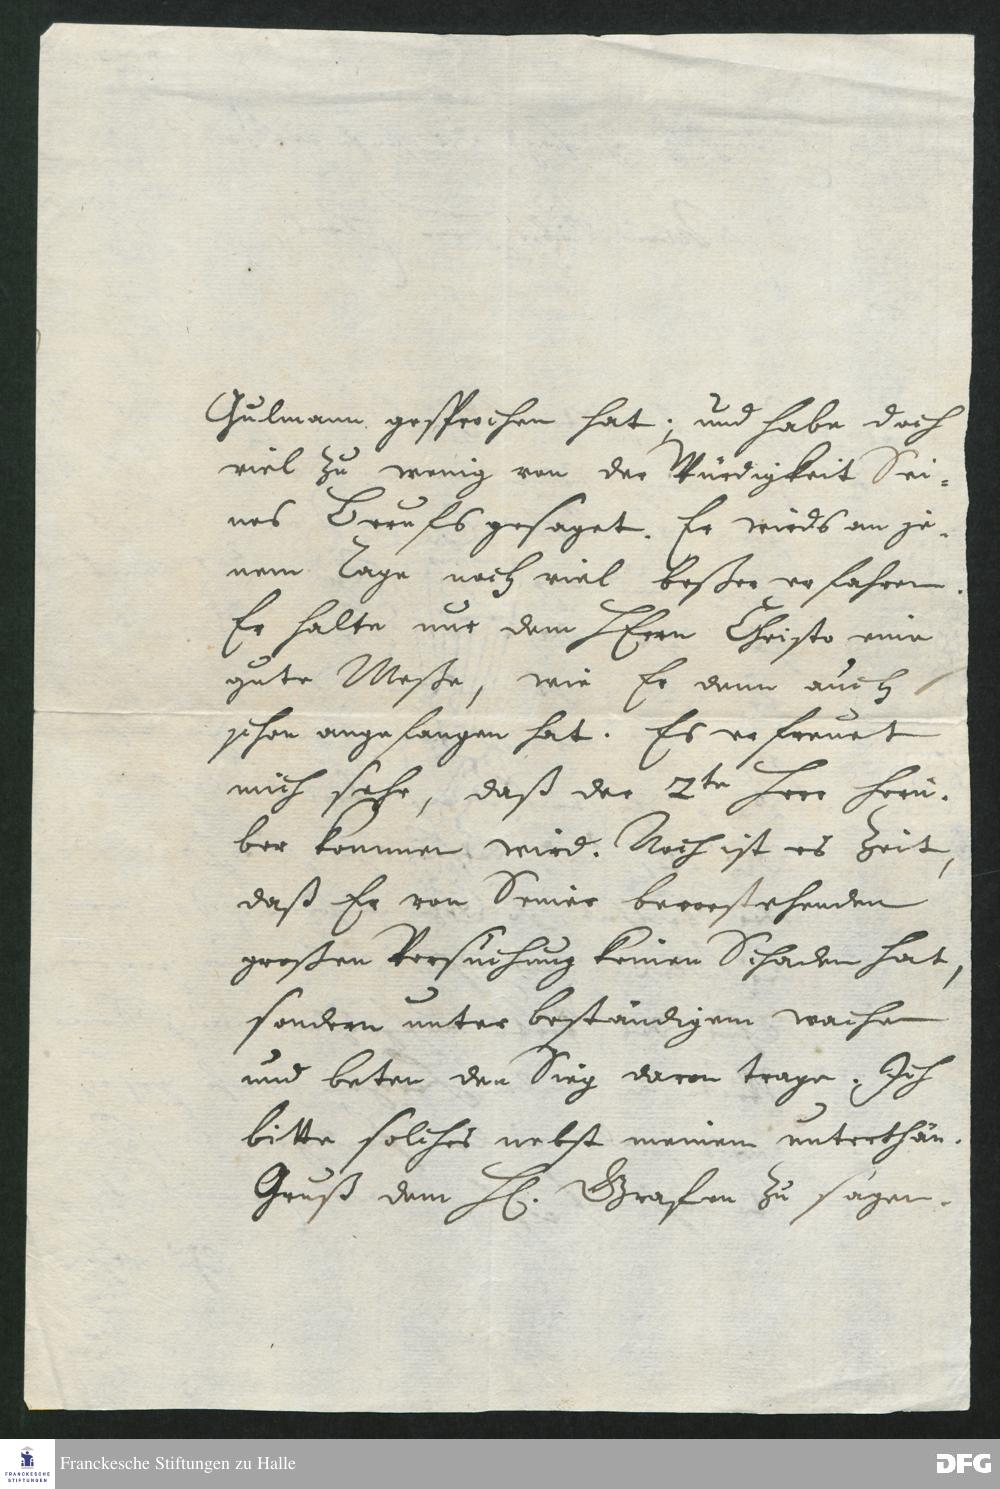 Gulmann gesprochen hat; und habe doch
viel zu wenig von der Würdigkeit Sei-
nes Berufs gesaget. Er wirds an je-
nem Tage noch viel beßer erfahren.
Er halte nur dem HErrn Christo eine
gute Meße, wie Er denn auch
schon angefangen hat. Es erfreuet
mich sehr, daß der 2te Herr herü-
ber kommen wird. Noch ist es Zeit,
daß Er von Seiner bevorstehenden
großen Versuchung keinen Schaden hat,
sondern unter beständigem wachen
und beten den Sieg davon trage. Ich
bitte solches nebst meinem unterthän.
Gruß dem H. Grafen zu sagen.
FRANCKESCHE
STIFTUNGEN
Franckesche Stiftungen zu Halle
DFG